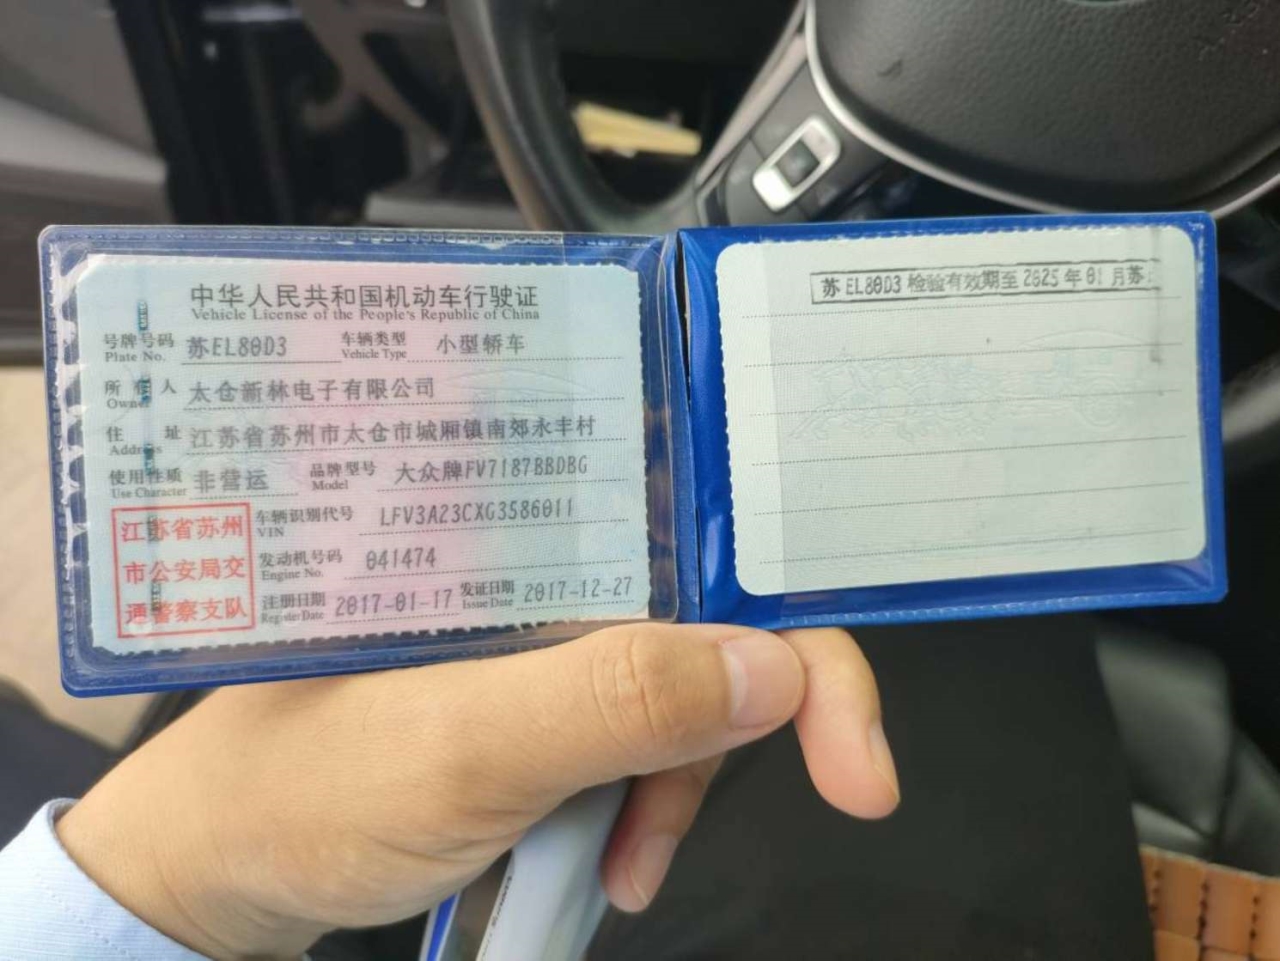 中华人民共和国机动车行驶证
Vehicle License of the People's Republic of China
号牌号码 苏EL80D3 车辆类型 小型轿车
Plate No. Vehicle Type
所有人 太仓新林电子有限公司
Owner
住址 江苏省苏州市太仓市城厢镇南郊永丰村
Address
使用性质 非营运 品牌型号 大众牌FV7187BBDBG
Use Character Model
江苏省苏州
市公安局交
通警察支队
车辆识别代号 LFV3A23CXG3586011
VIN
发动机号码 041474
Engine No.
注册日期 2017-01-17 发证日期 2017-12-27
Register Date Issue Date
苏EL80D3 检验有效期至 2025 年 01 月苏